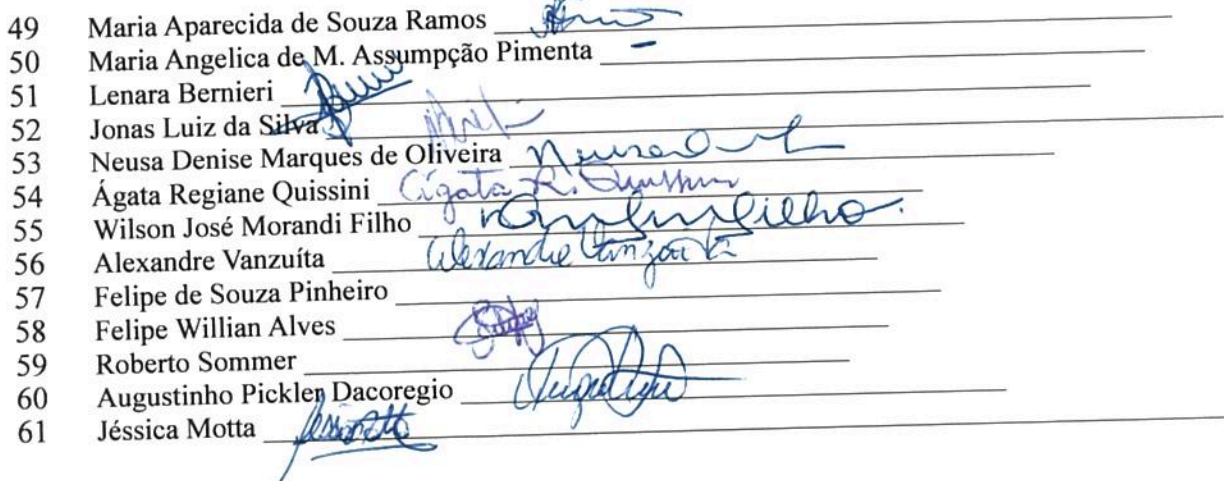 49 Maria Aparecida de Souza Ramos
50 Maria Angelica de M. Assumpção Pimenta
51 Lenara Bernieri
52 Jonas Luiz da Silva
53 Neusa Denise Marques de Oliveira
54 Ágata Regiane Quissini Ágata R. Quissini
55 Wilson José Morandi Filho Filho.
56 Alexandre Vanzuíta Alexandre Vanzuíta
57 Felipe de Souza Pinheiro
58 Felipe Willian Alves
59 Roberto Sommer
60 Augustinho Pickler Dacoregio
61 Jéssica Motta